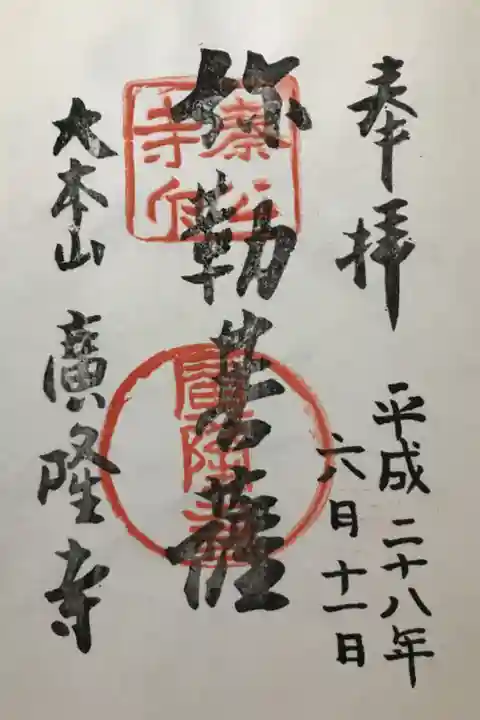 奉拝
平成二十八年
六月十一日
弥勒菩薩
大本山 廣隆寺